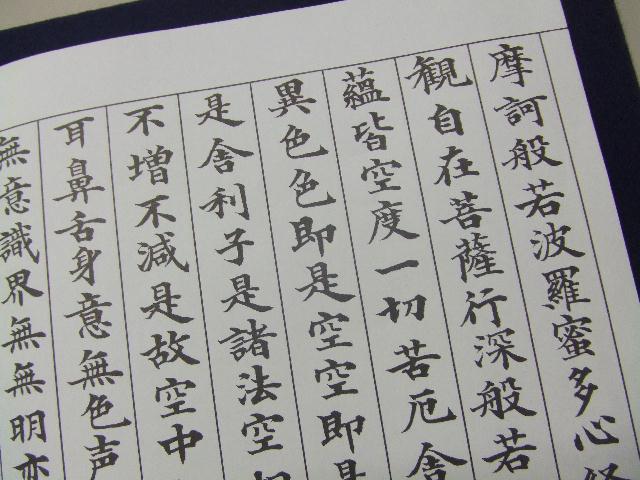 摩訶般若波羅蜜多心経
観自在菩薩行深般若
蘊皆空度一切苦厄舎
異色色即是空空即是
是舎利子是諸法空相
不増不減是故空中
耳鼻舌身意無色声
無意識界無無明亦